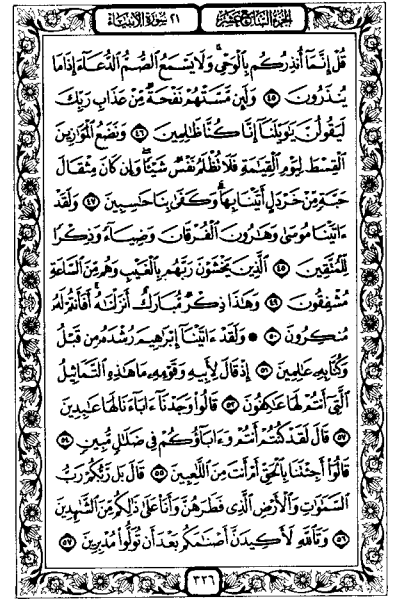 الجزء السابع عشر
٢١ سورة الأنبياء
قُلْ إِنَّمَآ أُنذِرُكُم بِٱلْوَحْىِ ۚ وَلَا يَسْمَعُ ٱلصُّمُّ ٱلدُّعَآءَ إِذَا مَا
يُنذَرُونَ ٤٥ وَلَئِن مَّسَّتْهُمْ نَفْحَةٌ مِّنْ عَذَابِ رَبِّكَ
لَيَقُولُنَّ يَٰوَيْلَنَآ إِنَّا كُنَّا ظَٰلِمِينَ ٤٦ وَنَضَعُ ٱلْمَوَٰزِينَ
ٱلْقِسْطَ لِيَوْمِ ٱلْقِيَٰمَةِ فَلَا تُظْلَمُ نَفْسٌ شَيْـًٔا ۖ وَإِن كَانَ مِثْقَالَ
حَبَّةٍ مِّنْ خَرْدَلٍ أَتَيْنَا بِهَا ۗ وَكَفَىٰ بِنَا حَٰسِبِينَ ٤٧ وَلَقَدْ
ءَاتَيْنَا مُوسَىٰ وَهَٰرُونَ ٱلْفُرْقَانَ وَضِيَآءً وَذِكْرًا
لِّلْمُتَّقِينَ ٤٨ ٱلَّذِينَ يَخْشَوْنَ رَبَّهُم بِٱلْغَيْبِ وَهُم مِّنَ ٱلسَّاعَةِ
مُشْفِقُونَ ٤٩ وَهَٰذَا ذِكْرٌ مُّبَارَكٌ أَنزَلْنَٰهُ ۚ أَفَأَنتُمْ لَهُۥ
مُنكِرُونَ ٥٠ ۞ وَلَقَدْ ءَاتَيْنَآ إِبْرَٰهِيمَ رُشْدَهُۥ مِن قَبْلُ
وَكُنَّا بِهِۦ عَٰلِمِينَ ٥١ إِذْ قَالَ لِأَبِيهِ وَقَوْمِهِۦ مَا هَٰذِهِ ٱلتَّمَاثِيلُ
ٱلَّتِىٓ أَنتُمْ لَهَا عَٰكِفُونَ ٥٢ قَالُوا۟ وَجَدْنَآ ءَابَآءَنَا لَهَا عَٰبِدِينَ
٥٣ قَالَ لَقَدْ كُنتُمْ أَنتُمْ وَءَابَآؤُكُمْ فِى ضَلَٰلٍ مُّبِينٍ ٥٤
قَالُوٓا۟ أَجِئْتَنَا بِٱلْحَقِّ أَمْ أَنتَ مِنَ ٱللَّٰعِبِينَ ٥٥ قَالَ بَل رَّبُّكُمْ رَبُّ
ٱلسَّمَٰوَٰتِ وَٱلْأَرْضِ ٱلَّذِى فَطَرَهُنَّ وَأَنَا۠ عَلَىٰ ذَٰلِكُم مِّنَ ٱلشَّٰهِدِينَ
٥٦ وَتَٱللَّهِ لَأَكِيدَنَّ أَصْنَٰمَكُم بَعْدَ أَن تُوَلُّوا۟ مُدْبِرِينَ ٥٧
٣٢٦